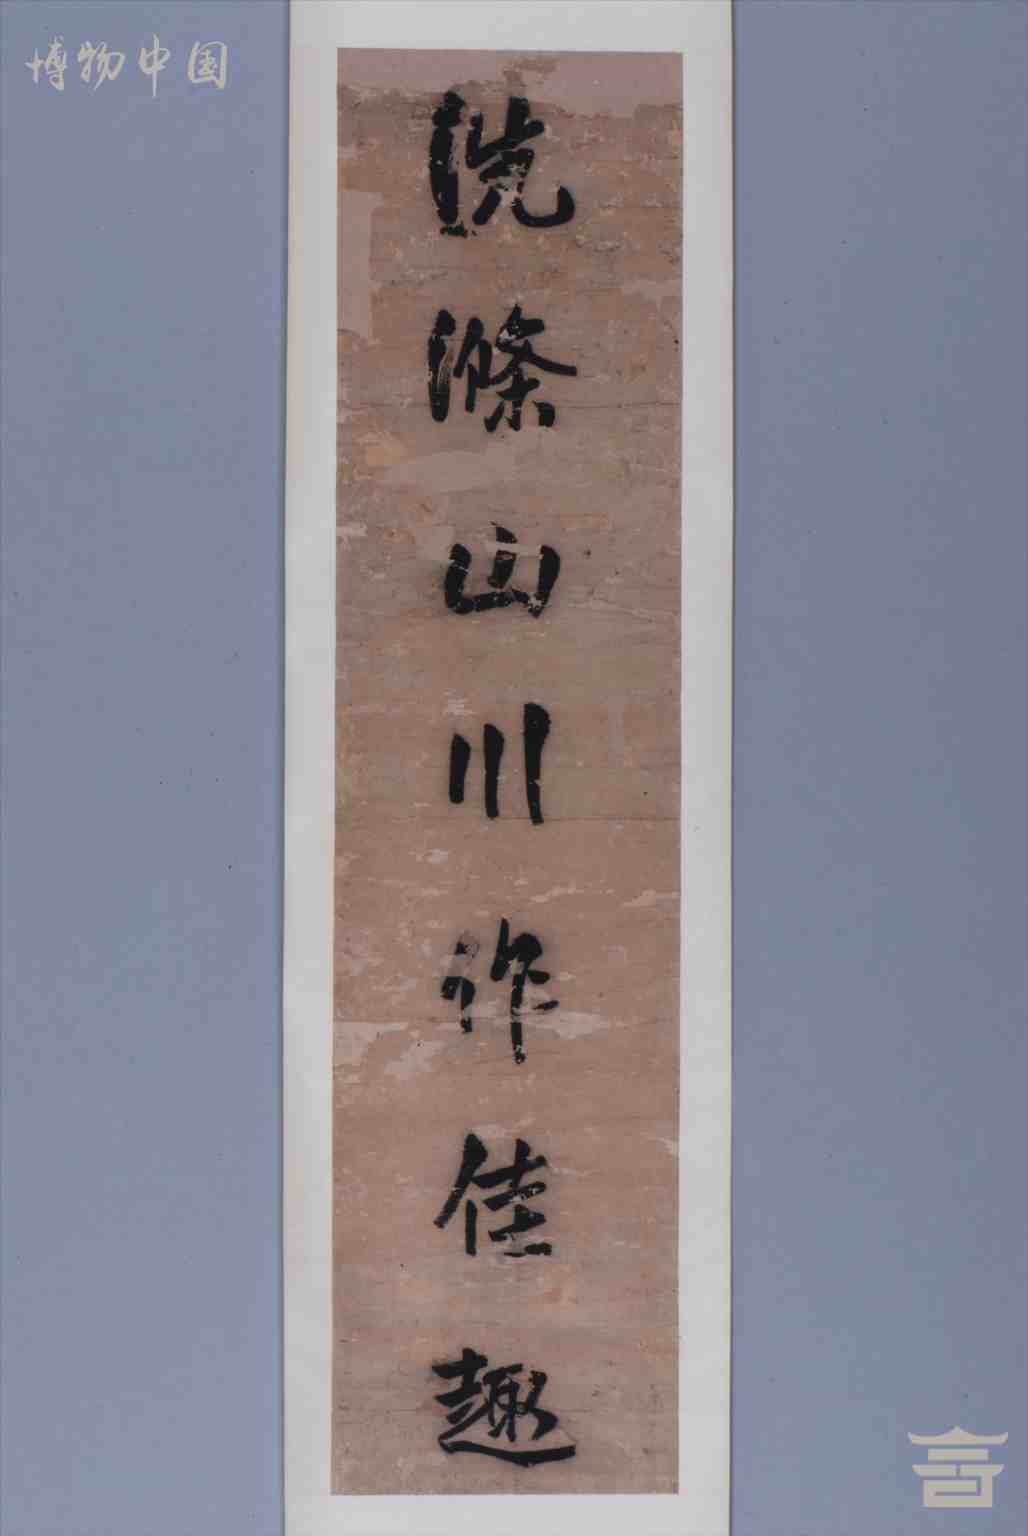 博物中国
洗滌山川作佳趣